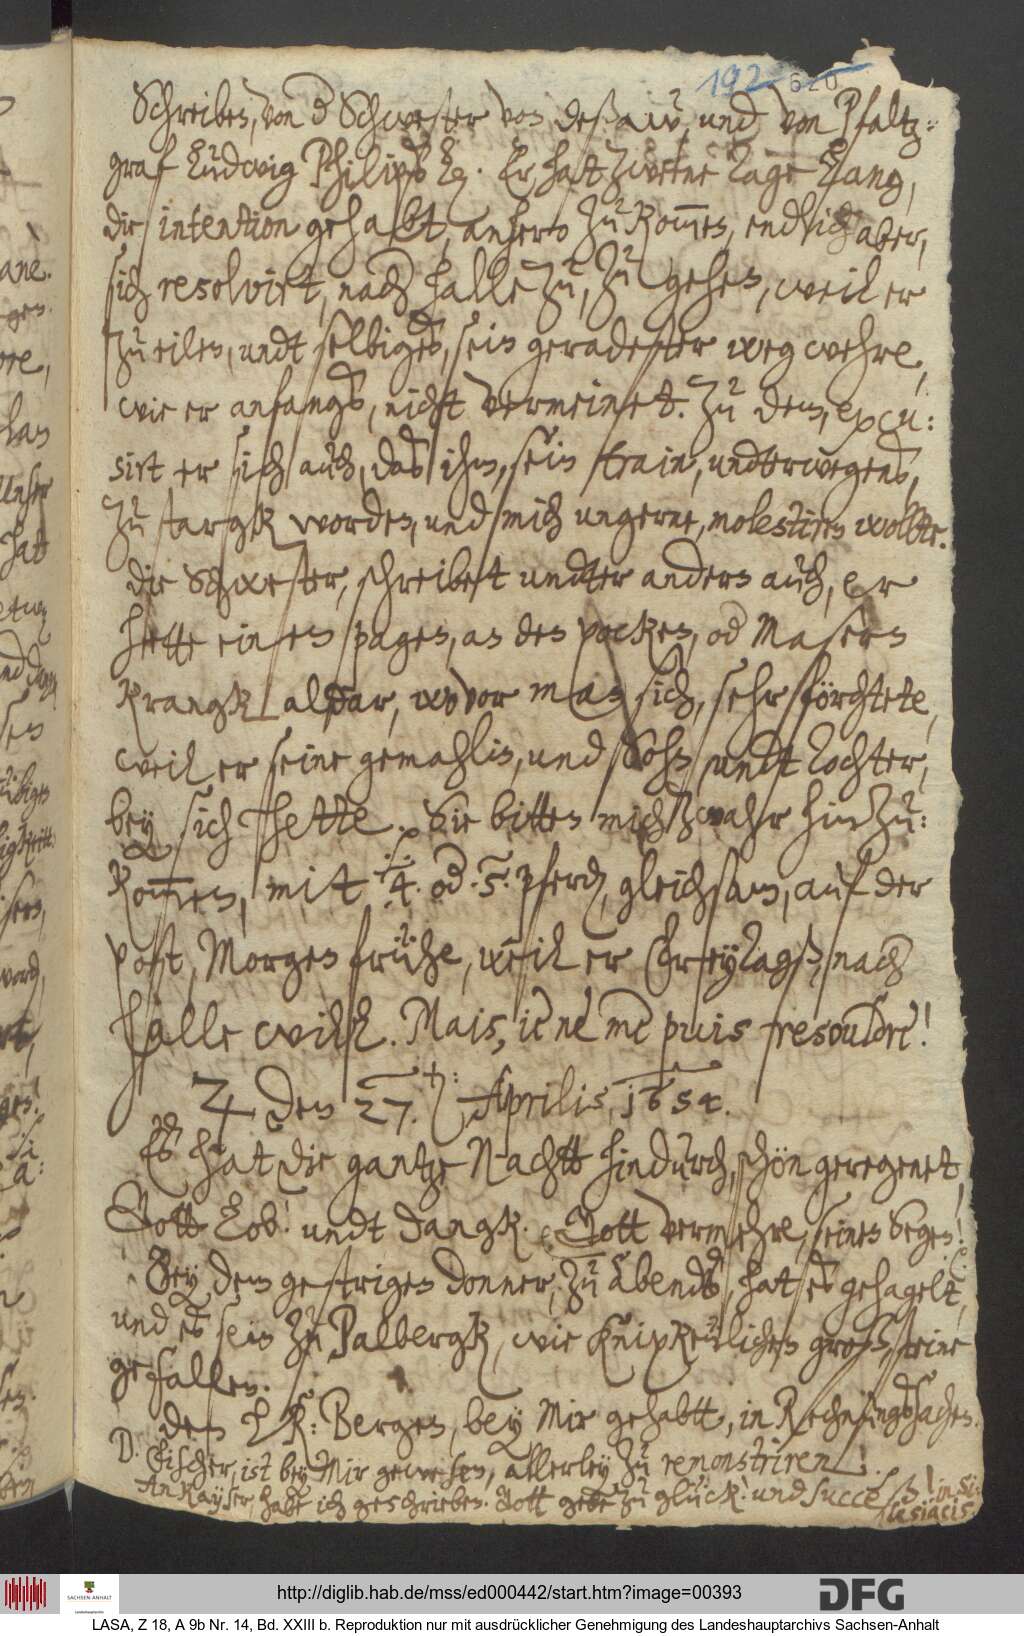 192 620
Schreiben, von der Schwester von Deßaw, und von Pfaltz-
graf Ludwig Philips Lg. Er hatt zweene Tage lang,
die intention gehabt, anhero zu kommen, endlich aber,
sich resolvirt, nach Halle zu, zu gehen, weil er
zu eilen, undt selbiges, sein geradester weg wehre,
wie er anfangs, nicht vermeinet. Zu dem, excu:
sirt er sich auch, das ihm, sein train, undterwegens,
zu stargk worden, und mich ungerne, molestiren wollte.
Die Schwester, schreibet undter andern auch, er
hette einen pagen, an den pocken, od Masern
krangk alldar, wovor man sich, sehr förchtete,
weil er seine gemahlin, und Sohn undt Tochter,
bey sich hette. Sie bitten mich zwahr hinzu:
kommen, mit 4. od. 5. pferden, gleichsam, auf der
post, Morgen frühe, weil er Freytags, nach
Halle will. Mais, ie ne me puis resouldre!
♃ den 27. Aprilis, 1654.
Es hat die gantze Nachtt hindurch, schön geregenet,
Gott Lob! undt dangk. Gott vermehre, seinen Segen!
Bey dem gestrigen donner, zu abends, hat es gehagelt,
und es sein zu Palbergk, wie Knipkeulichen große, steine
gefallen.
den HK: Bergen, bey Mir gehabtt, in Rechnungssachen.
D. Fischer, ist bey Mir gewesen, allerley zu remonstriren.
An Kayser, habe ich geschrieben. Gott gebe zu glück! und succeß! in Si-
lesiacis.
http://diglib.hab.de/mss/ed000442/start.htm?image=00393
SACHSEN-ANHALT
Landeshauptarchiv
DFG
LASA, Z 18, A 9b Nr. 14, Bd. XXIII b. Reproduktion nur mit ausdrücklicher Genehmigung des Landeshauptarchivs Sachsen-Anhalt